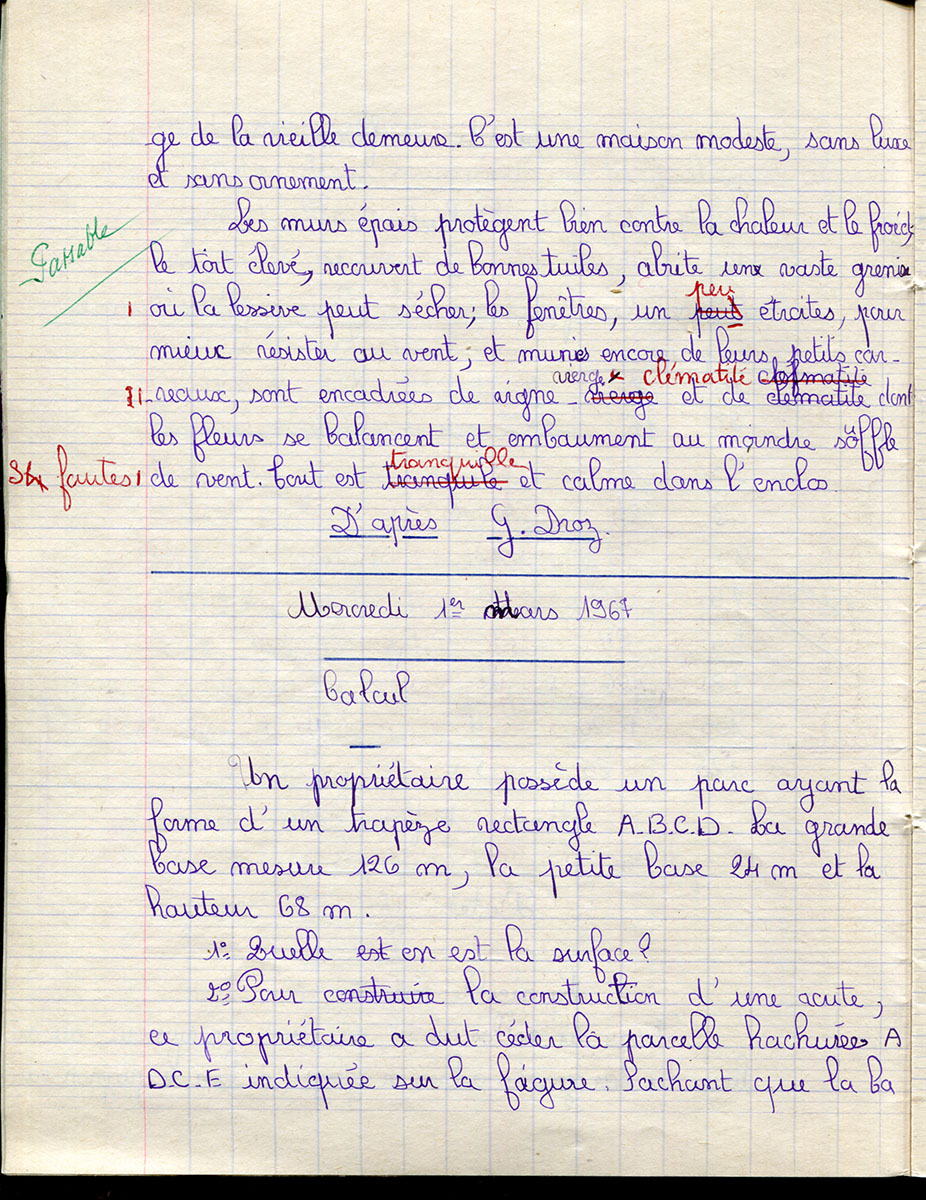 ge de la vieille demeure. C'est une maison modeste, sans luxe
et sans ornement.
Les murs épais protègent bien contre la chaleur et le froid,
Passable
le toit élevé, recouvert de bonnes tuiles, abrite une vaste grenier
peu
I où la lessive peut sécher; les fenêtres, un peut etroites, pour
mieux résister au vent, et munies encore de leurs petits car-
vierge x clématite clefmatite
II -reaux, sont encadrées de vigne-vierge et de clematite dont
les fleurs se balancent et embaument au moindre söffle
tranquille
fautes I de vent. Tout est tranquile et calme dans l'enclos
D'après G. Droz.
Mercredi 1er Mars 1967
Calcul
Un propriétaire possède un parc ayant la
forme d'un trapèze rectangle A.B.C.D. La grande
base mesure 126 m, la petite base 24 m et la
hauteur 68 m.
1º Quelle est en est la surface?
2º Pour construire la construction d'une route,
ce propriétaire a dut céder la parcelle hachurées A
D.C.E indiquée sur la figure. Sachant que la ba